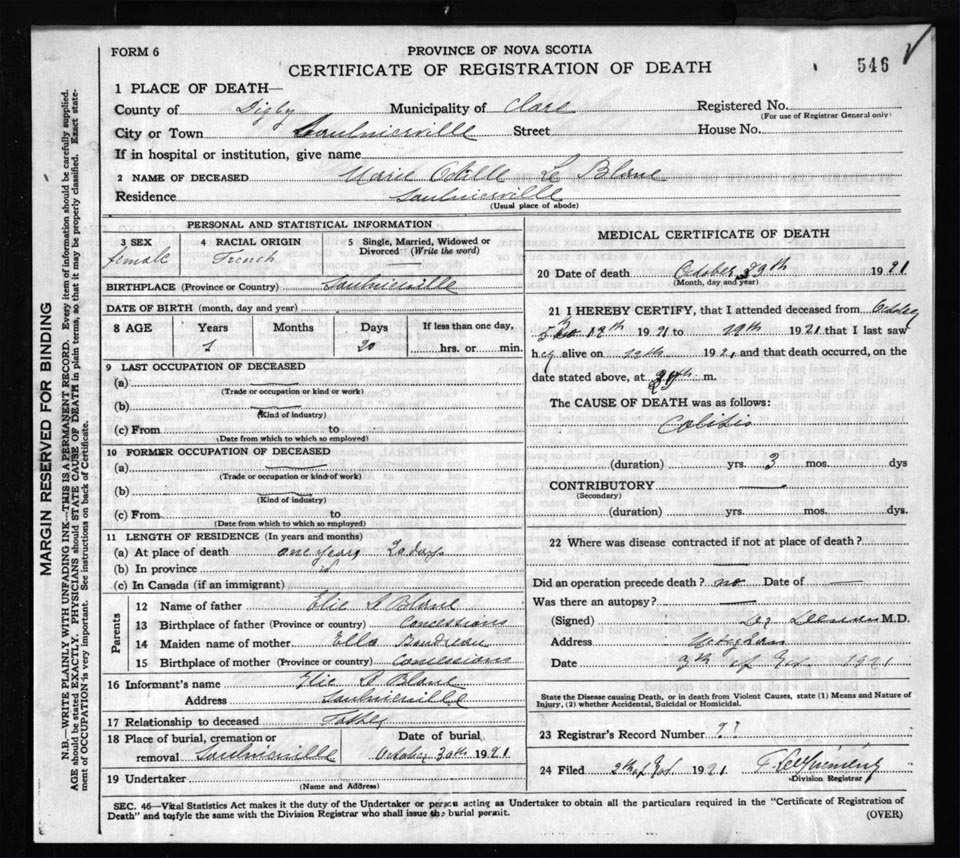 FORM 6
PROVINCE OF NOVA SCOTIA
CERTIFICATE OF REGISTRATION OF DEATH
546
1 PLACE OF DEATH—
County of Digby Municipality of Clare Registered No.
(For use of Registrar General only)
City or Town Saulnierville Street House No.
If in hospital or institution, give name
2 NAME OF DECEASED Marie Odille Le Blanc
Residence Saulnierville
(Usual place of abode)
PERSONAL AND STATISTICAL INFORMATION
3 SEX 4 RACIAL ORIGIN 5 Single, Married, Widowed or Divorced (Write the word)
female French
BIRTHPLACE (Province or Country) Saulnierville
DATE OF BIRTH (month, day and year)
8 AGE Years Months Days If less than one day,
1 20 hrs. or min.
9 LAST OCCUPATION OF DECEASED
(a)
(Trade or occupation or kind or work)
(b)
(Kind of industry)
(c) From to
(Date from which to which so employed)
10 FORMER OCCUPATION OF DECEASED
(a)
(Trade or occupation or kind of work)
(b)
(Kind of industry)
(c) From to
(Date from which to which so employed)
11 LENGTH OF RESIDENCE (In years and months)
(a) At place of death one year 20 days
(b) In province
(c) In Canada (if an immigrant)
Parents
12 Name of father Elie Le Blanc
13 Birthplace of father (Province or country) Concessions
14 Maiden name of mother Ella Boudreau
15 Birthplace of mother (Province or country) Concessions
16 Informant's name Elie Le Blanc
Address Saulnierville
17 Relationship to deceased Father
18 Place of burial, cremation or removal Saulnierville Date of burial October 30th 1921
19 Undertaker
(Name and Address)
MEDICAL CERTIFICATE OF DEATH
20 Date of death October 29th 1921
(Month, day and year)
21 I HEREBY CERTIFY, that I attended deceased from October
19th 1921 to 19th 1921 that I last saw
her alive on 19th 1921 and that death occurred, on the
date stated above, at m.
The CAUSE OF DEATH was as follows:
Colitis
(duration) yrs. 3 mos. dys
CONTRIBUTORY
(Secondary)
(duration) yrs. mos. dys.
22 Where was disease contracted if not at place of death?
Did an operation precede death? no Date of
Was there an autopsy?
(Signed) M.D.
Address Meteghan
Date 1921
State the Disease causing Death, or in death from Violent Causes, state (1) Means and Nature of
Injury, (2) whether Accidental, Suicidal or Homicidal.
23 Registrar's Record Number
24 Filed 1921
Division Registrar
SEC. 46—Vital Statistics Act makes it the duty of the Undertaker or person acting as Undertaker to obtain all the particulars required in the "Certificate of Registration of
Death" and to file the same with the Division Registrar who shall issue the burial permit.
(OVER)
MARGIN RESERVED FOR BINDING
N.B.—WRITE PLAINLY WITH UNFADING INK—THIS IS A PERMANENT RECORD. Every item of information should be carefully supplied.
AGE should be stated EXACTLY. PHYSICIANS should STATE CAUSE OF DEATH in plain terms, so that it may be properly classified. Exact state-
ment of OCCUPATION is very important. See instructions on back of Certificate.